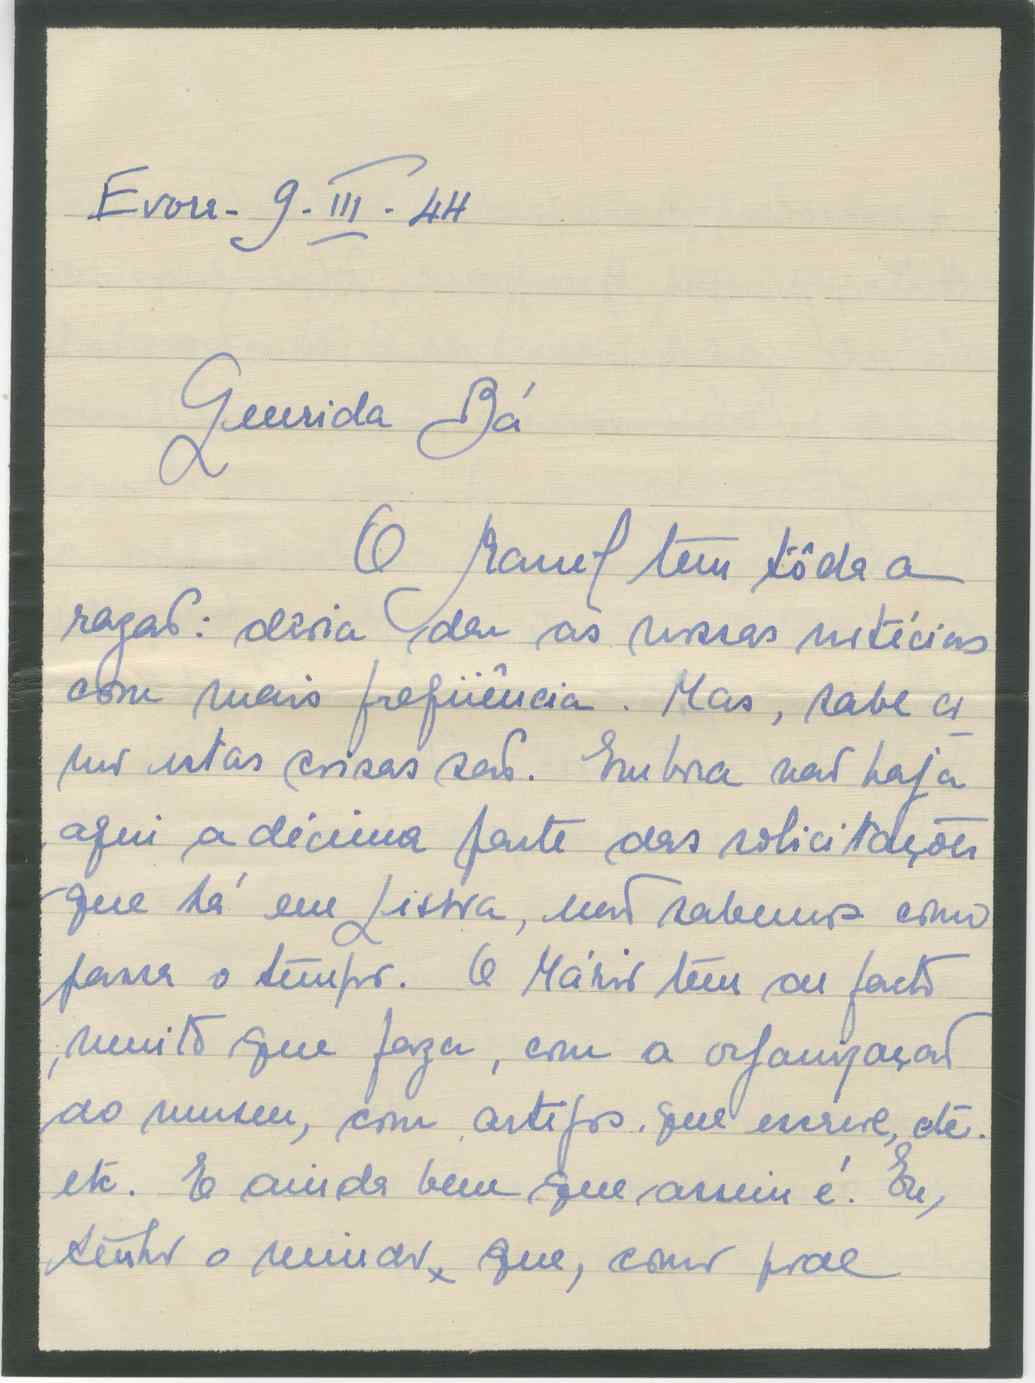 Evora - 9 - III - 44
Querida Bá
O Manuel tem tôda a
razaõ: devia dar as nossas notícias
com mais freqüência. Mas, sabe co
mo estas coisas saõ. Embora naõ haja
aqui a décima parte das solicitações
que há em Lisboa, naõ sabemos como
passa o tempo. O Mário tem de facto
muito que fazer, com a organizaçaõ
do museu, com artigos que escreve, etc.
etc. E ainda bem que assim é. Eu,
tenho o miudo, que, como pode